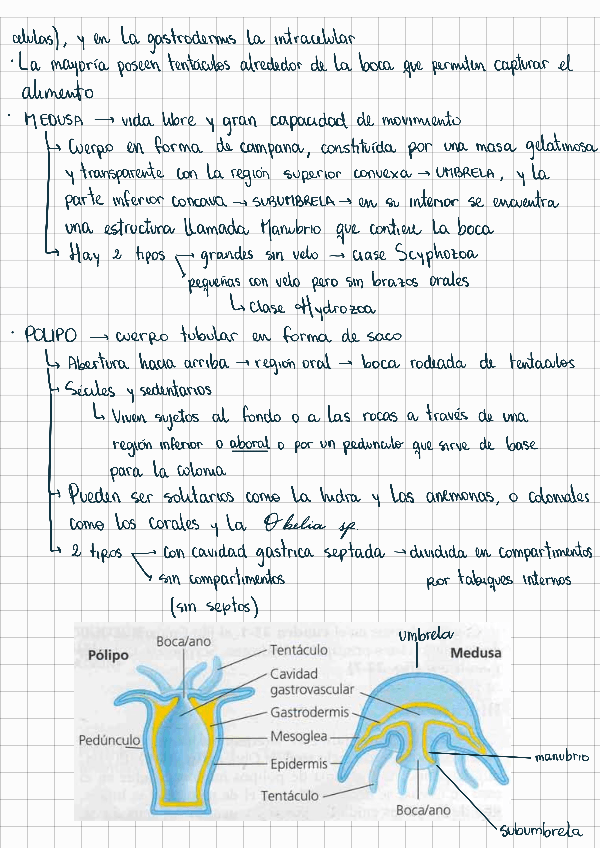 celulas), y en la gastrodermis la intracelular
· La mayoría poseen tentáculos alrededor de la boca que permiten capturar el
alimento
· MEDUSA → vida libre y gran capacidad de movimiento
↳ Cuerpo en forma de campana, constituída por una masa gelatinosa
y transparente con la región superior convexa → UMBRELA, y la
parte inferior concava → SUBUMBRELA → en su interior se encuentra
una estructura llamada Manubrio que contiene la boca
↳ Hay 2 tipos → grandes sin velo → clase Scyphozoa
pequeñas con velo pero sin brazos orales
↳ Clase Hydrozoa
· POLIPO → cuerpo tubular en forma de saco
↳ Abertura hacia arriba → región oral → boca rodeada de tentáculos
↳ Sésiles y sedentarios
↳ Viven sujetos al fondo o a las rocas a través de una
región inferior o aboral o por un pedunculo que sirve de base
para la colonia
↳ Pueden ser solitarios como la hidra y las anemonas, o coloniales
como los corales y la Obelia sp.
↳ 2 tipos → con cavidad gastrica septada → dividida en compartimentos
→ sin compartimentos por tabiques internos
(sin septos)
umbrela
Pólipo Boca/ano Tentáculo Medusa
Cavidad
gastrovascular
Gastrodermis
Pedúnculo Mesoglea
manubrio
Epidermis
Tentáculo
Boca/ano
subumbrela